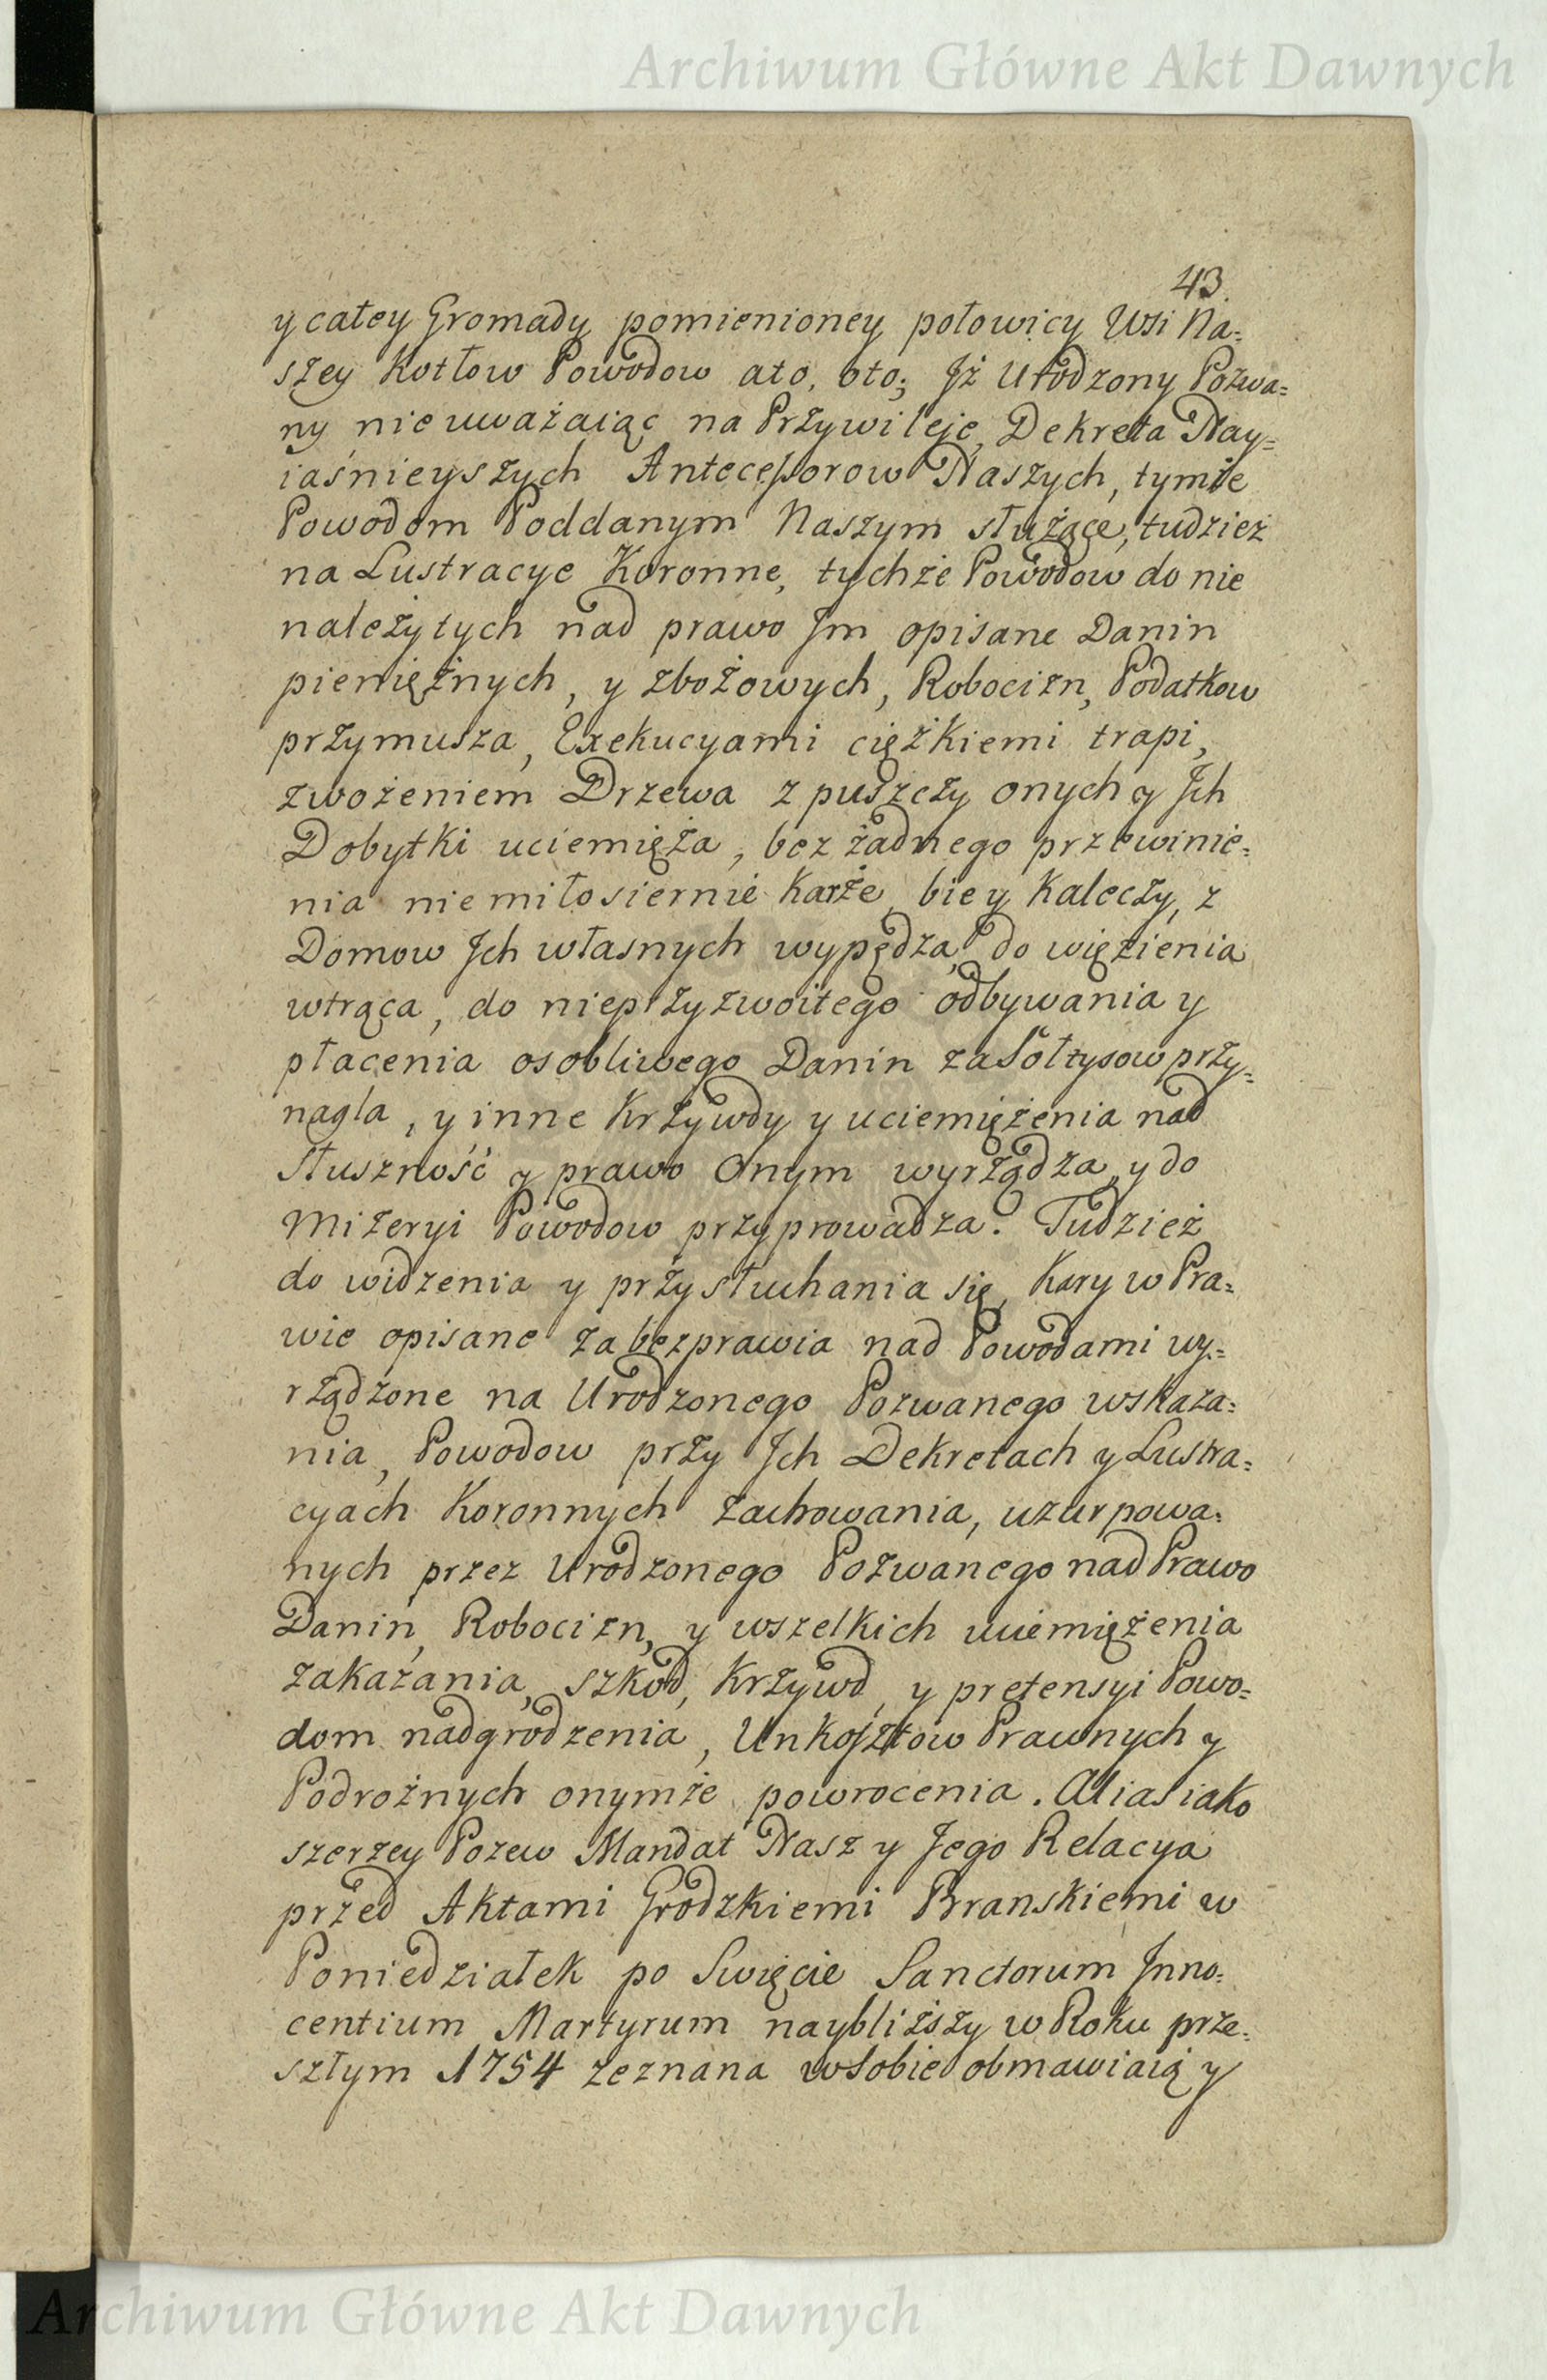 Archiwum Główne Akt Dawnych
43.
y całey Gromady pomienioney połowicy Wsi Na=
szey Kotłow Powodow ato, oto; Jż Urodzony Pozwa=
ny nie uważaiąc na Przywileje, Dekreta Nay=
iaśnieyszych Antecessorow Naszych, tymże
Powodom Poddanym Naszym służące, tudzież
na Lustracye Koronne, tychże Powodow do nie
należytych nad prawo Jm opisane Danin
pieniężnych, y zbożowych, Robocizn, Podatkow
przymusza, Exekucyami ciężkiemi trapi,
zwożeniem Drzewa z puszczy onych y Jch
Dobytki uciemięża, bez żadnego przewinie=
nia niemiłosiernie karże, bie y kaleczy, z
Domow Jch własnych wypędza, do więzienia
wtrąca, do nieprzyzwoitego odbywania y
płacenia osobliwego Danin za Sołtysow przy=
nagla, y inne Krzywdy y uciemiężenia nad
Słuszność y prawo Onym wyrządza, y do
Mizeryi Powodow przyprowadza. Tudzież
do widzenia y przysłuchania się, Kary w Pra=
wie opisane za bezprawia nad Powodami wy=
rządzone na Urodzonego Pozwanego wskaza=
nia, Powodow przy Jch Dekretach y Lustra=
cyach Koronnych zachowania, uzurpowa=
nych przez Urodzonego Pozwanego nad Prawo
Danin, Robocizn, y wszelkich uciemiężenia
zakazania, szkod, Krzywd, y pretensyi Powo=
dom nadgrodzenia, Unkosztow Prawnych y
Podrożnych onymże powrocenia. Alias iako
szerzey Pozew Mandat Nasz y Jego Relacya
przed Aktami Grodzkiemi Branskiemi w
Poniedziałek po Swięcie Sanctorum Jnno=
centium Martyrum naybliższy w Roku prze=
szłym 1754 zeznana w sobie obmawiaią y
Archiwum Główne Akt Dawnych